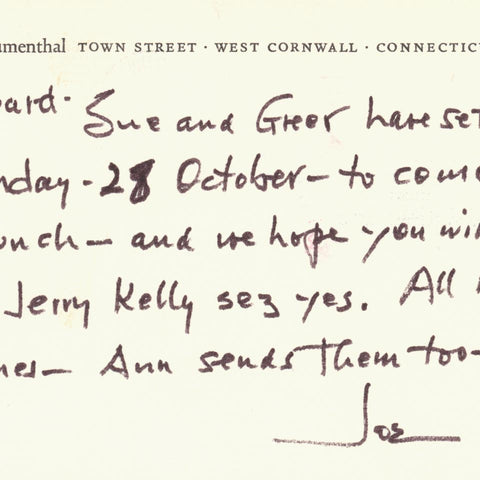 umenthal TOWN STREET · WEST CORNWALL · CONNECTICU
ard- Sue and Greer have set
nday - 28 October - to come
unch - and we hope you win
Jerry Kelly sez yes. All
nes - Ann sends them too -
Joe